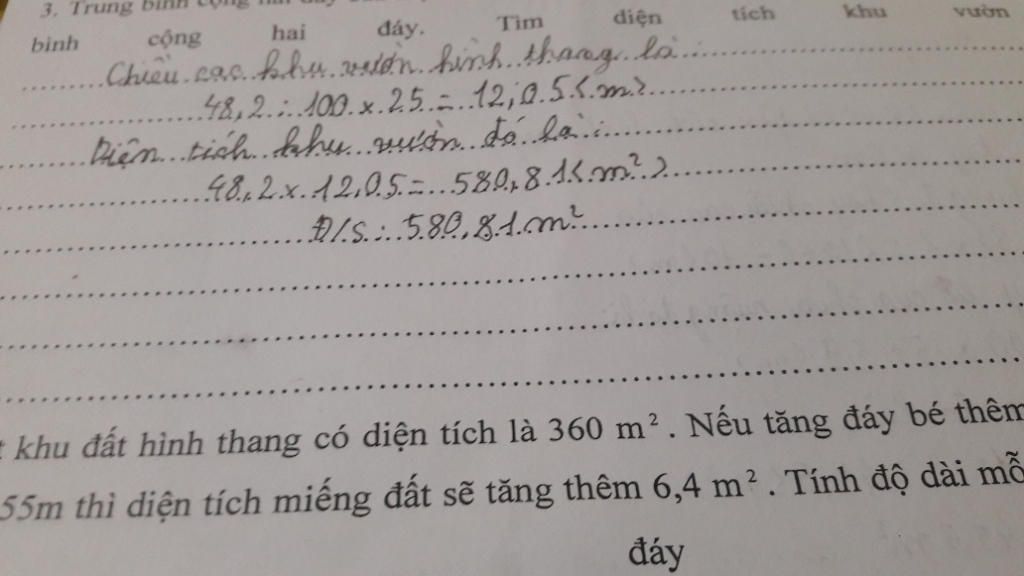 3. Trung bình cộng hai đáy
bình cộng hai đáy. Tìm diện tích khu vườn
Chiều cao khu vườn hình thang là :
48,2 : 100 x 25 = 12,05 (m)
Diện tích khu vườn đó là :
48,2 x 12,05 = 580,81 (m²)
Đ/S : 580,81 m²
khu đất hình thang có diện tích là 360 m² . Nếu tăng đáy bé thêm
55m thì diện tích miếng đất sẽ tăng thêm 6,4 m² . Tính độ dài mỗ
đáy